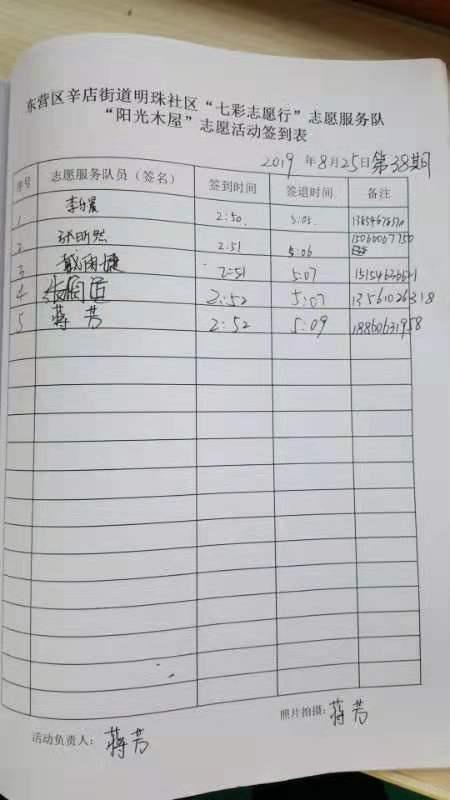 东营区辛店街道明珠社区“七彩志愿行”志愿服务队
“阳光木屋”志愿活动签到表
2019 年8月25日第38期
序号 志愿服务队员（签名） 签到时间 签退时间 备注
1 2:50 5:05
2 2:51 5:06 15060067750
3 2:51 5:07
4 2:52 5:07 13561026318
5 蒋芳 2:52 5:09 18860631958
照片拍摄：蒋芳
活动负责人：蒋芳